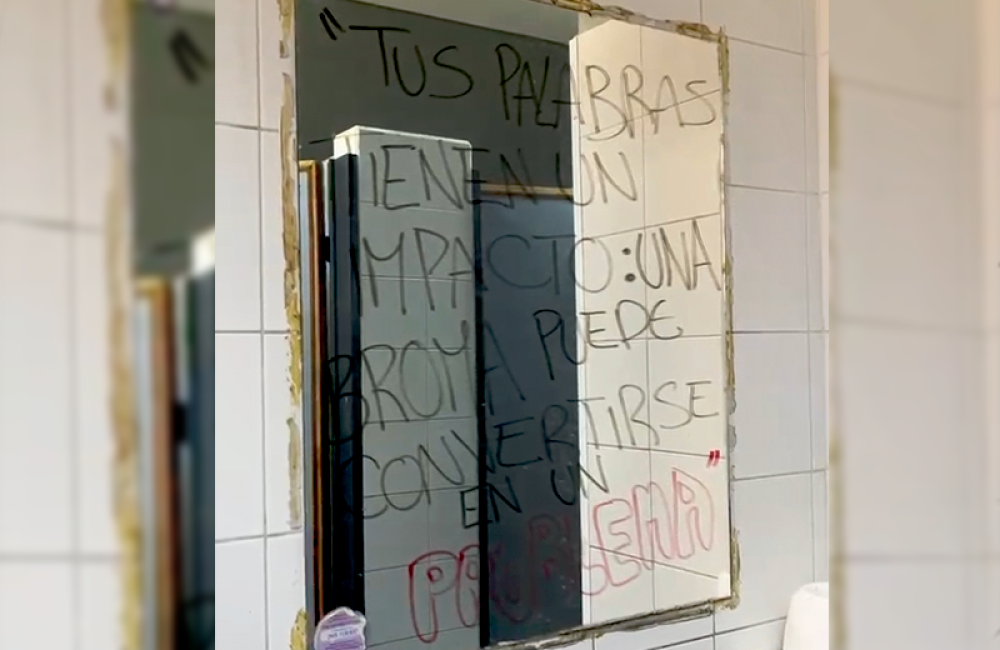 "TUS PALABRAS
TIENEN UN
IMPACTO: UNA
BROMA PUEDE
CONVERTIRSE
EN UN
PROBLEMA"